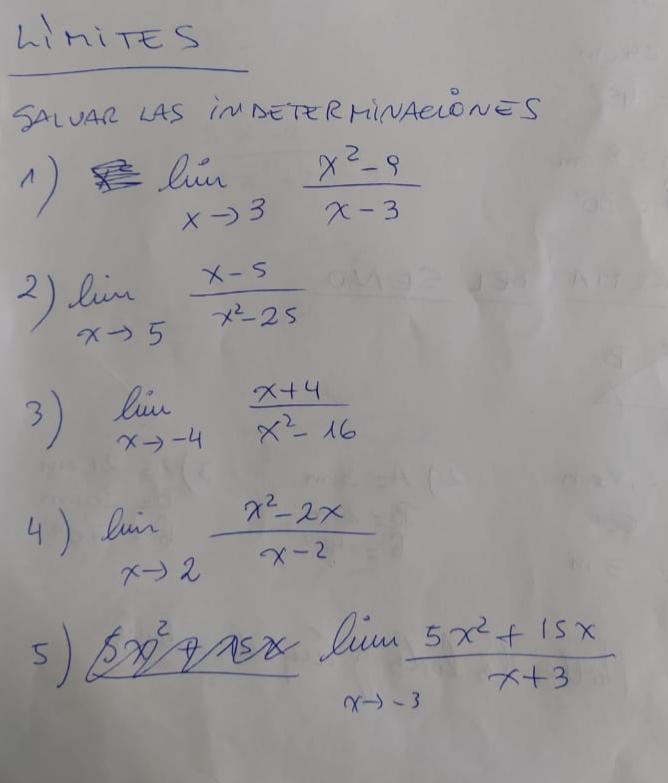 LÍMITES
SALVAR LAS INDETERMINACIONES
1) lim x→3 (x²-9)/(x-3)
2) lim x→5 (x-5)/(x²-25)
3) lim x→-4 (x+4)/(x²-16)
4) lim x→2 (x²-2x)/(x-2)
5) 5x²+15x lim x→-3 (5x²+15x)/(x+3)